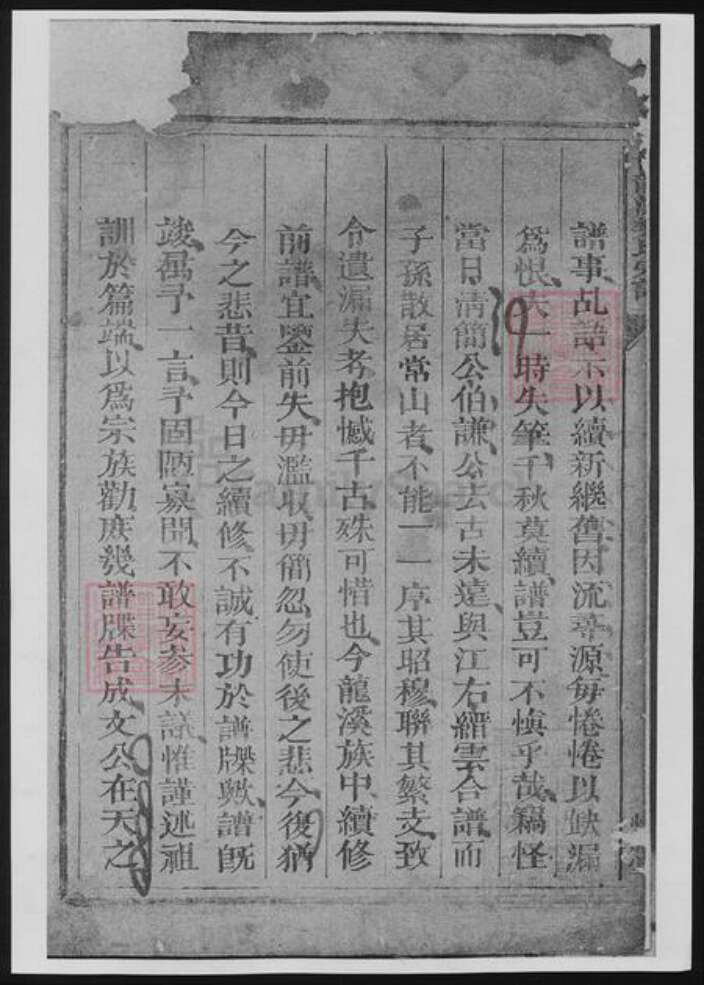 譜事乱語不以續新繼舊因流尋源每惓惓以缺漏
爲恨夫一時失筆千秋莫續譜豈可不慎乎哉竊怪
當日淸簡公伯謙公去古未遠與江右縉雲合譜而
子孫散居常山者不能一一序其昭穆聯其繁支致
令遺漏失考抱憾千古殊可惜也今龍溪族中續修
前譜宜鑒前失毋濫收毋簡忽勿使後之悲今復猶
今之悲昔則今日之續修不誠有功於譜牒歟譜旣
竣萬予一言予固陋寡聞不敢妄參末議惟謹述祖
訓於篇端以爲宗族勸庶幾譜牒告成文公在天之